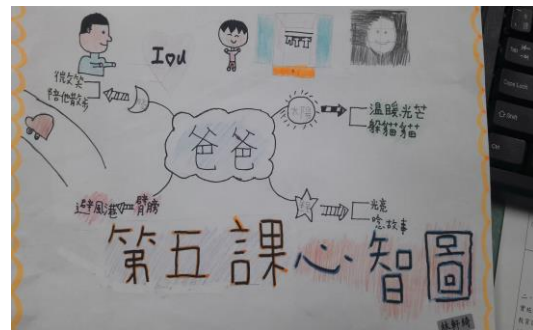 I♡u
微笑
陪他散步
太陽
溫暖光芒
躲貓貓
爸爸
避風港
臂膀
光亮
唸故事
第五課心智圖
Caps Lock
Shift
Ctrl